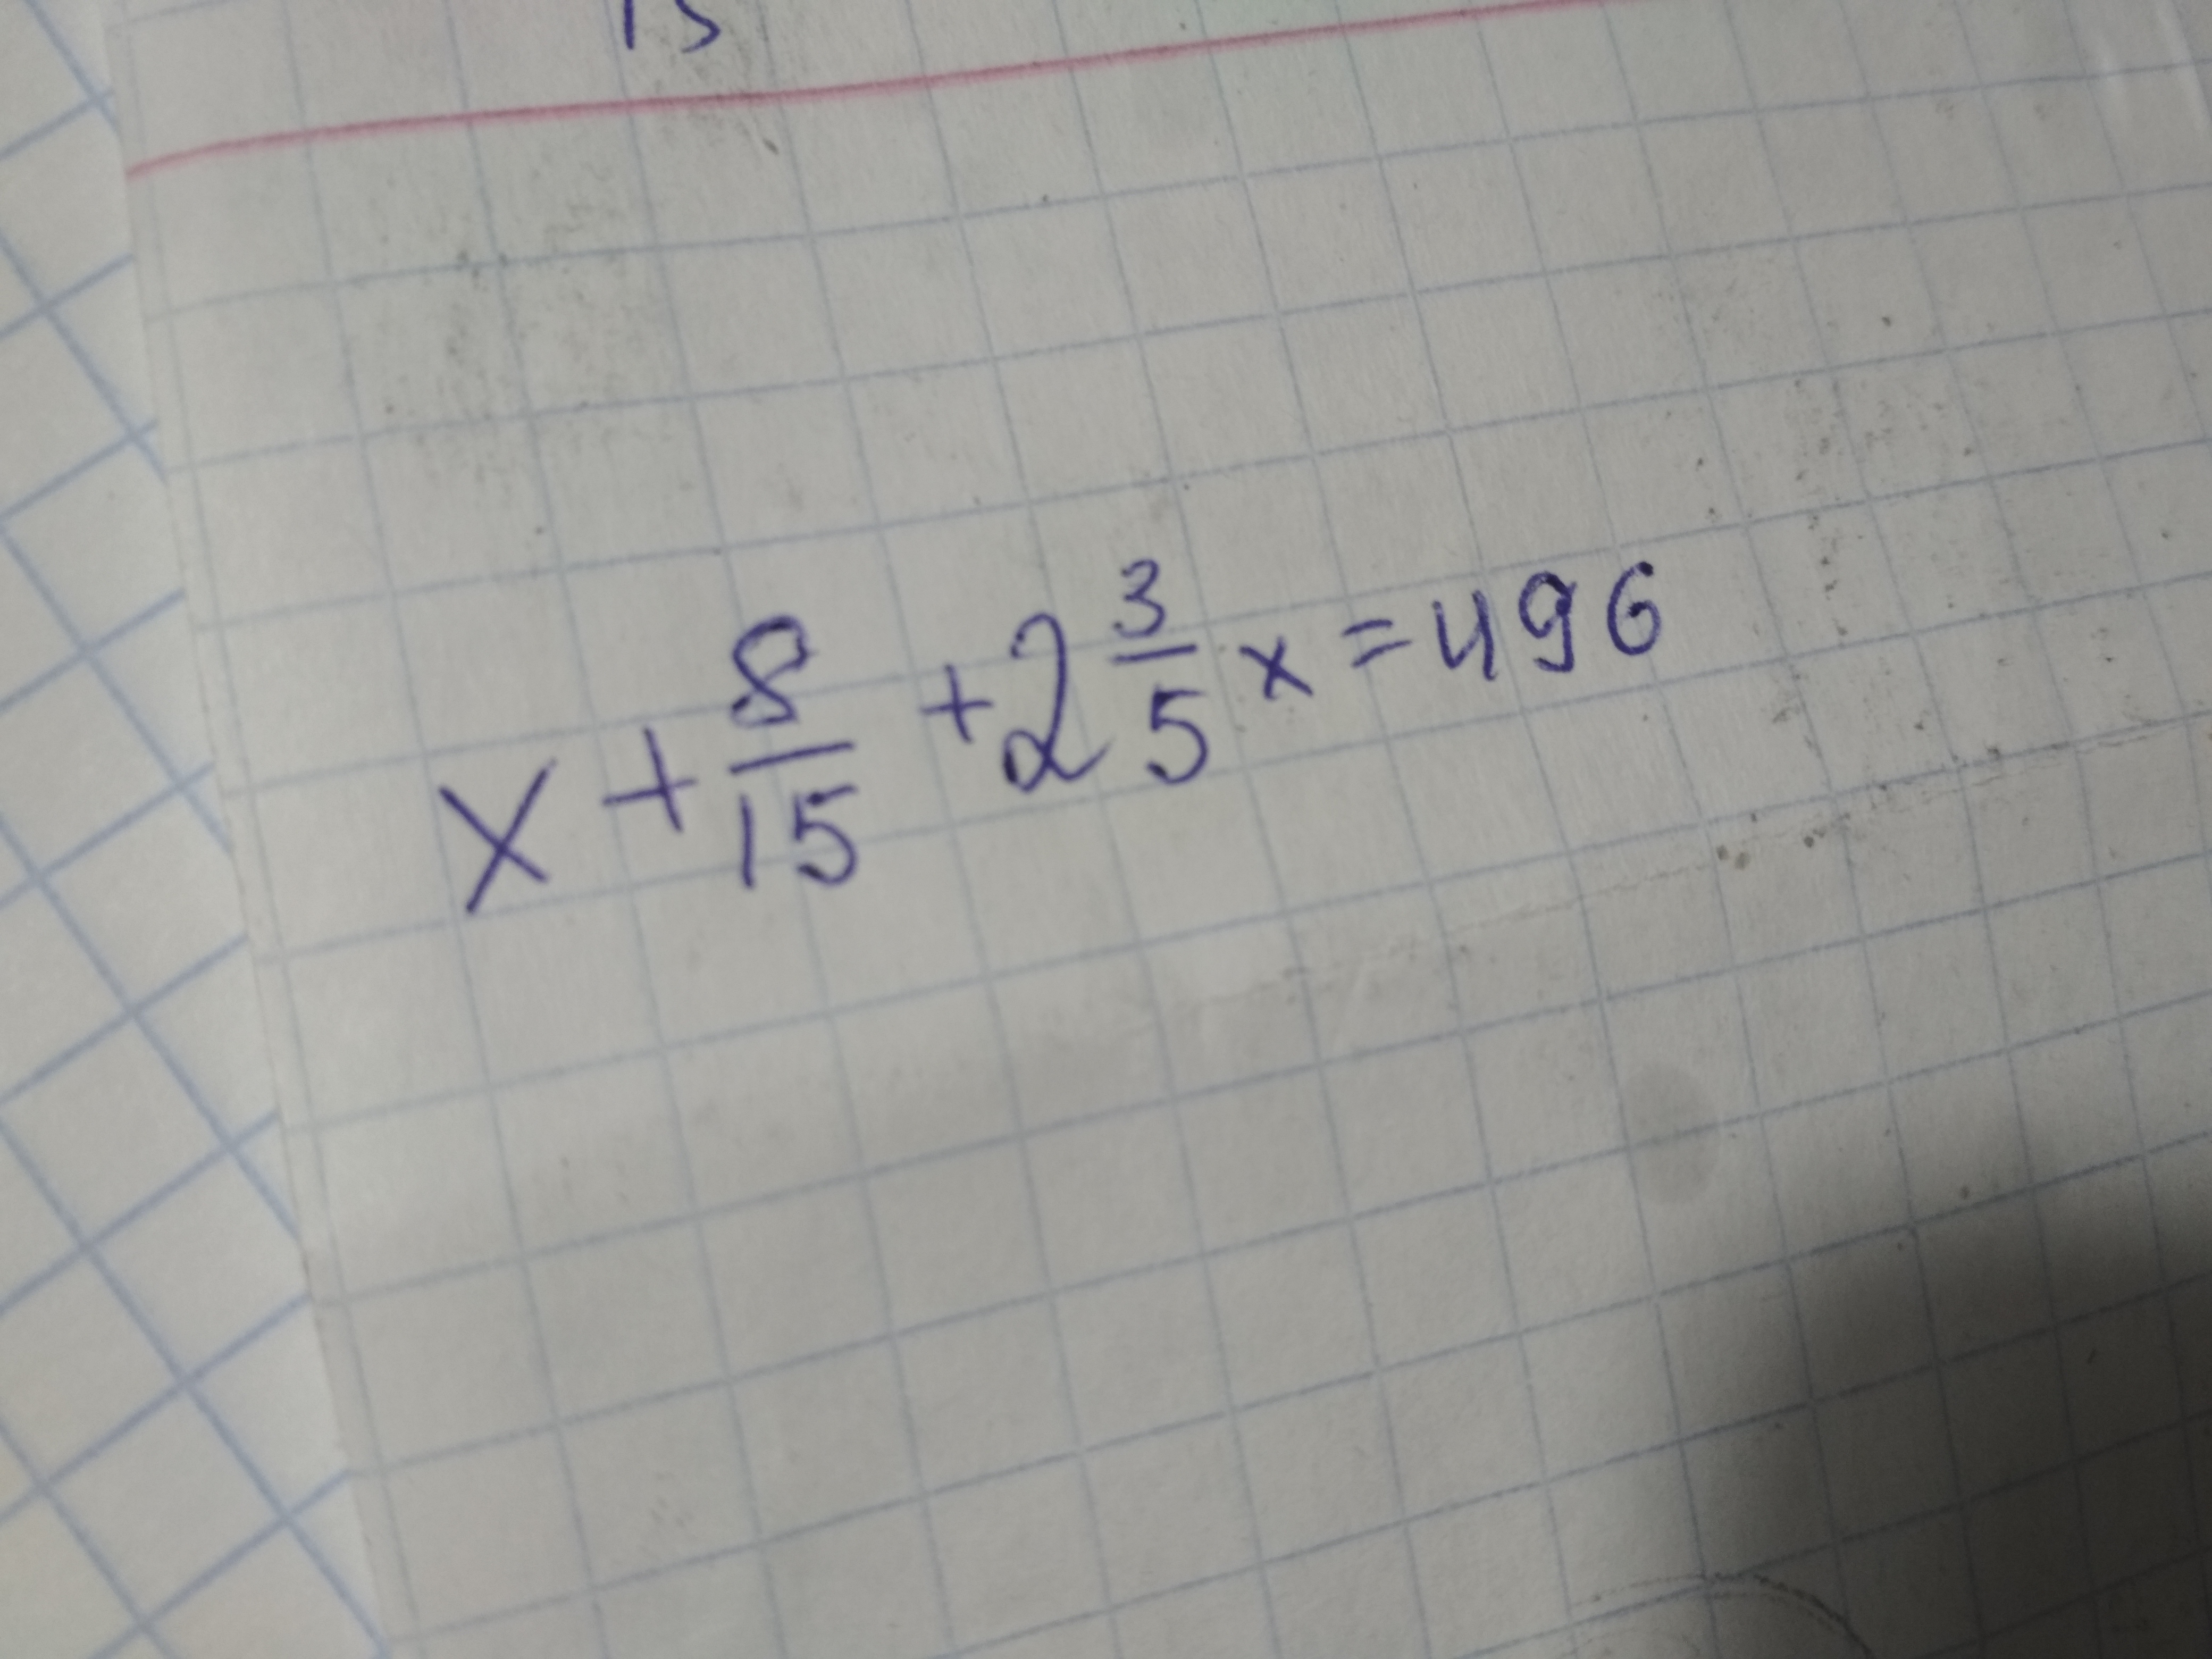 15
x + 8/15 + 2 3/5 x = 496